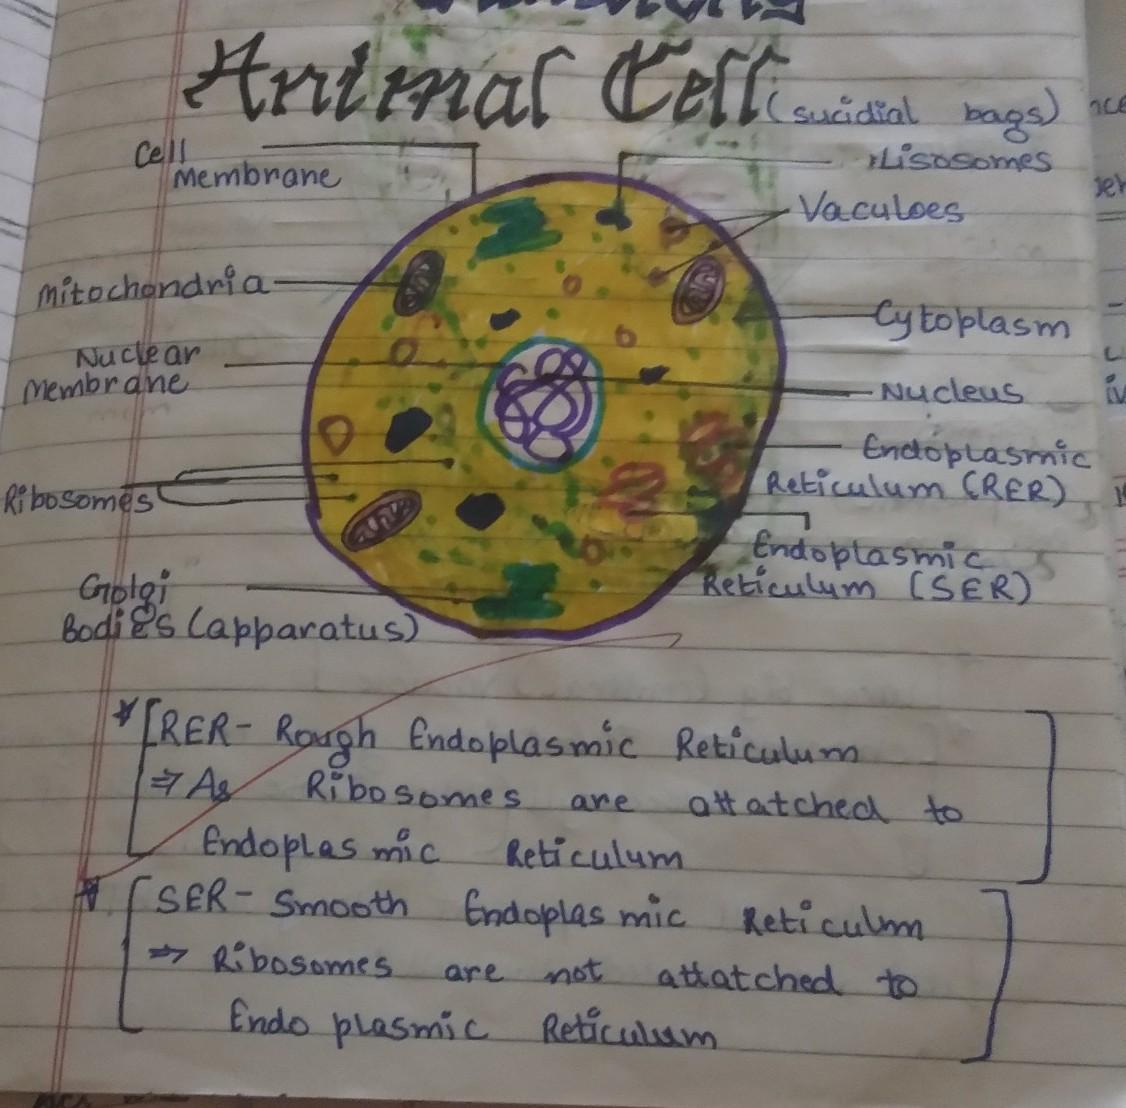 Animal Cell
(sucidial bags)
Cell
Membrane
Lisosomes
Vaculoes
Mitochondria
Cytoplasm
Nuclear
Membrane
Nucleus
Endoplasmic
Reticulum (RER)
Ribosomes
Endoplasmic
Reticulum (SER)
Golgi
Bodies (apparatus)
RER- Rough Endoplasmic Reticulum
⇒ As Ribosomes are attatched to
Endoplasmic Reticulum
SER- Smooth Endoplasmic Reticulm
⇒ Ribosomes are not attatched to
Endoplasmic Reticulum